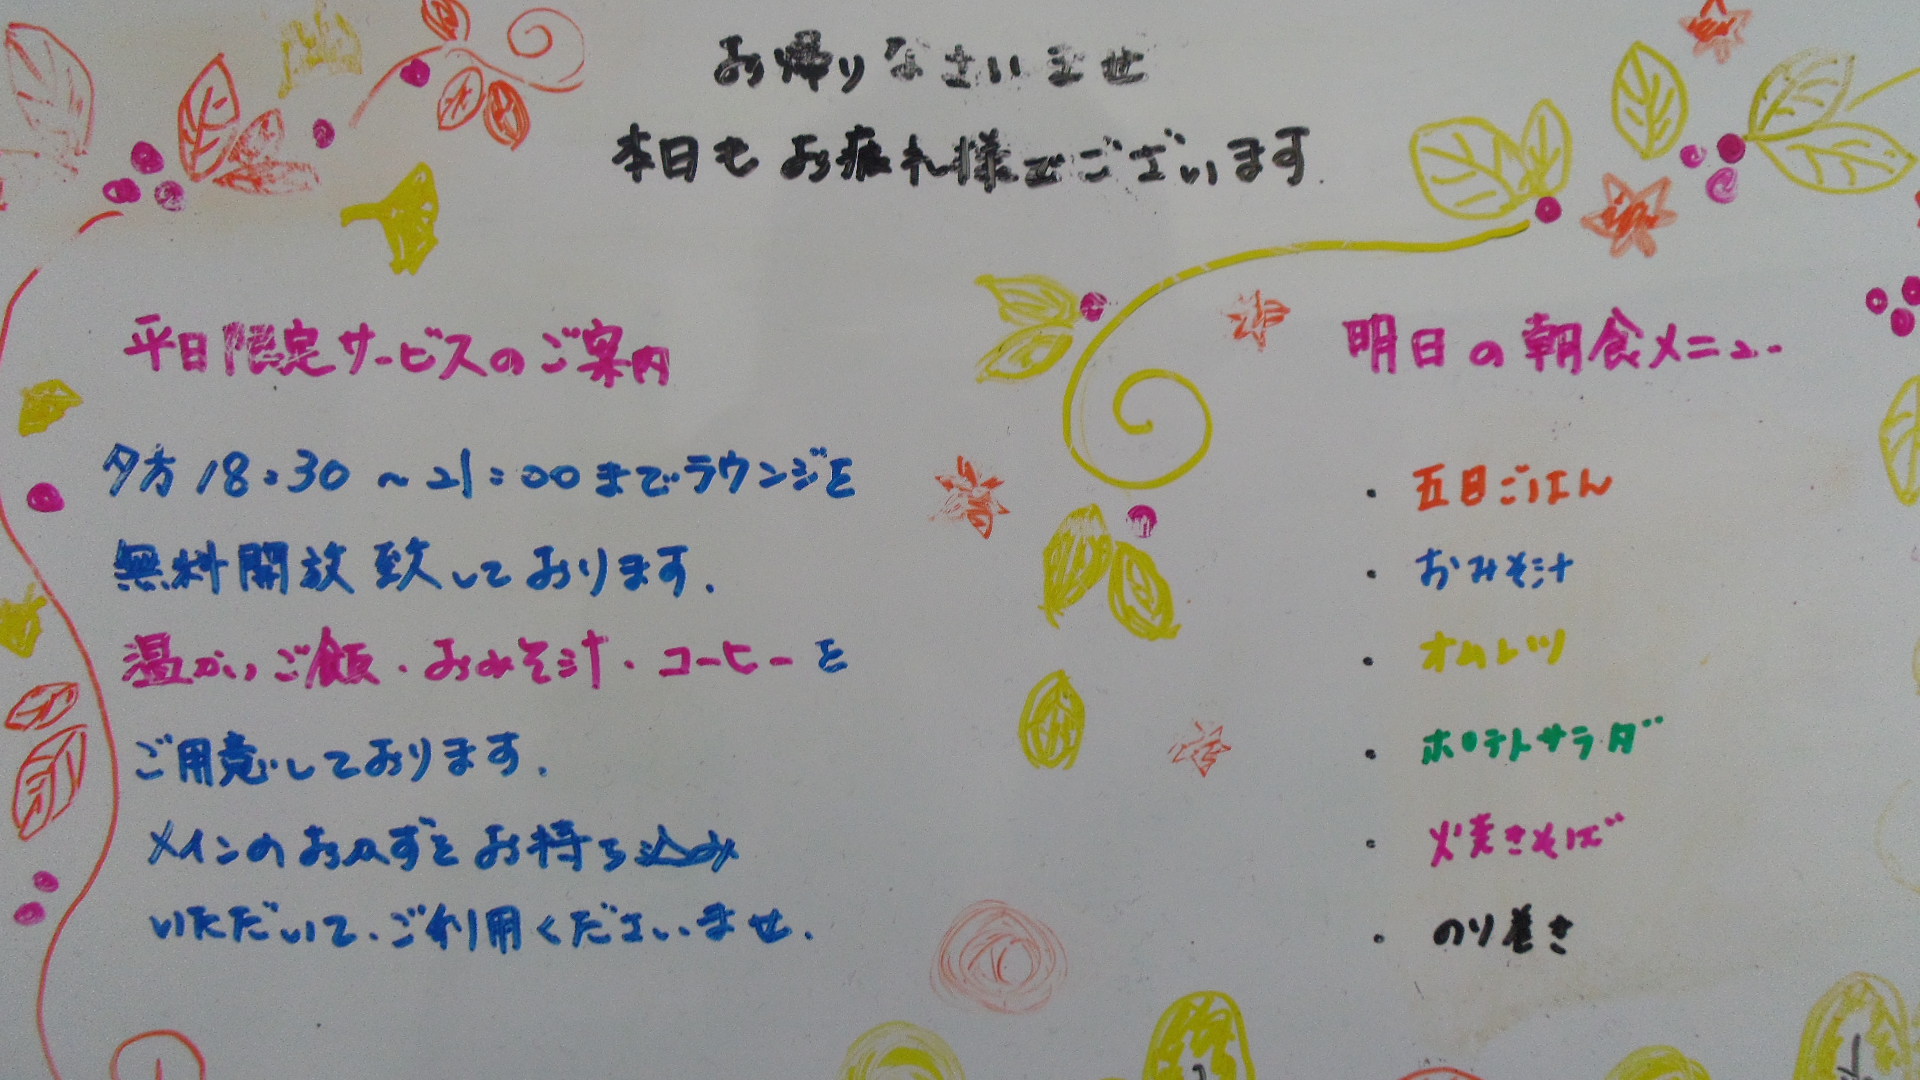 お帰りなさいませ
本日もお疲れ様でございます
平日限定サービスのご案内
夕方18:30～21:00までラウンジを
無料開放致しております.
温かいご飯・おみそ汁・コーヒーを
ご用意しております.
メインのおかずをお持ち込み
いただいて、ご利用くださいませ.
明日の朝食メニュー
・五目ごはん
・おみそ汁
・オムレツ
・ポテトサラダ
・焼きそば
・のり巻き